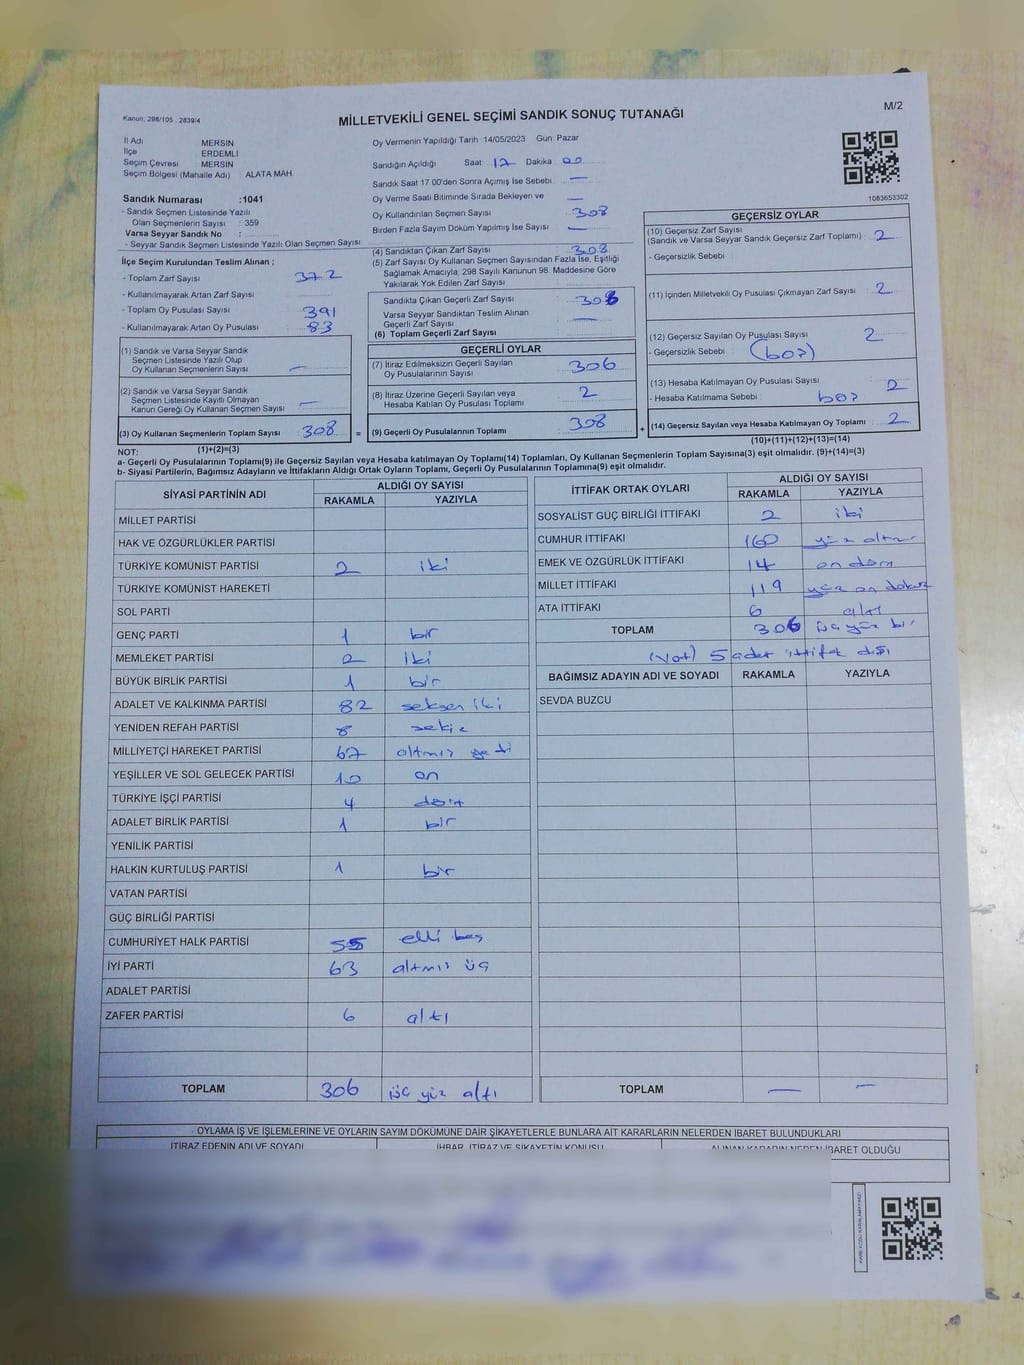 Kanun: 298/105 , 2839/4
MİLLETVEKİLİ GENEL SEÇİMİ SANDIK SONUÇ TUTANAĞI
M/2
İl Adı MERSİN
İlçe ERDEMLİ
Seçim Çevresi MERSİN
Seçim Bölgesi (Mahalle Adı) : ALATA MAH.
Sandık Numarası :1041
- Sandık Seçmen Listesinde Yazılı
Olan Seçmenlerin Sayısı : 359
Varsa Seyyar Sandık No :
- Seyyar Sandık Seçmen Listesinde Yazılı Olan Seçmen Sayısı
İlçe Seçim Kurulundan Teslim Alınan ;
- Toplam Zarf Sayısı 372
- Kullanılmayarak Artan Zarf Sayısı
- Toplam Oy Pusulası Sayısı 391
- Kullanılmayarak Artan Oy Pusulası 83
(1) Sandık ve Varsa Seyyar Sandık
Seçmen Listesinde Yazılı Olup
Oy Kullanan Seçmenlerin Sayısı —
(2) Sandık ve Varsa Seyyar Sandık
Seçmen Listesinde Kayıtlı Olmayan
Kanun Gereği Oy Kullanan Seçmen Sayısı —
(3) Oy Kullanan Seçmenlerin Toplam Sayısı 308 =
(1)+(2)=(3)
Oy Vermenin Yapıldığı Tarih :14/05/2023 Gün: Pazar
Sandığın Açıldığı Saat: 17 Dakika 00
Sandık Saat 17.00'den Sonra Açılmış İse Sebebi —
Oy Verme Saati Bitiminde Sırada Bekleyen ve —
Oy Kullandırılan Seçmen Sayısı 308
Birden Fazla Sayım Döküm Yapılmış İse Sayısı —
(4) Sandıktan Çıkan Zarf Sayısı 308
(5) Zarf Sayısı Oy Kullanan Seçmen Sayısından Fazla İse, Eşitliği
Sağlamak Amacıyla; 298 Sayılı Kanunun 98. Maddesine Göre
Yakılarak Yok Edilen Zarf Sayısı
Sandıkta Çıkan Geçerli Zarf Sayısı
Varsa Seyyar Sandıktan Teslim Alınan
Geçerli Zarf Sayısı —
(6) Toplam Geçerli Zarf Sayısı
GEÇERLİ OYLAR
(7) İtiraz Edilmeksizin Geçerli Sayılan
Oy Pusulalarının Sayısı 306
(8) İtiraz Üzerine Geçerli Sayılan veya
Hesaba Katılan Oy Pusulası Toplamı 2
(9) Geçerli Oy Pusulalarının Toplamı 308 +
1083653302
GEÇERSİZ OYLAR
(10) Geçersiz Zarf Sayısı
(Sandık ve Varsa Seyyar Sandık Geçersiz Zarf Toplamı) : 2
- Geçersizlik Sebebi
(11) İçinden Milletvekili Oy Pusulası Çıkmayan Zarf Sayısı 2
(12) Geçersiz Sayılan Oy Pusulası Sayısı 2
- Geçersizlik Sebebi (boş)
(13) Hesaba Katılmayan Oy Pusulası Sayısı 2
- Hesaba Katılmama Sebebi : boş
(14) Geçersiz Sayılan veya Hesaba Katılmayan Oy Toplamı 2
(10)+(11)+(12)+(13)=(14)
NOT:
a- Geçerli Oy Pusulalarının Toplamı(9) ile Geçersiz Sayılan veya Hesaba katılmayan Oy Toplamı(14) Toplamları, Oy Kullanan Seçmenlerin Toplam Sayısına(3) eşit olmalıdır. (9)+(14)=(3)
b- Siyasi Partilerin, Bağımsız Adayların ve İttifakların Aldığı Ortak Oyların Toplamı, Geçerli Oy Pusulalarının Toplamına(9) eşit olmalıdır.
SİYASİ PARTİNİN ADI ALDIĞI OY SAYISI
RAKAMLA YAZIYLA
MİLLET PARTİSİ
HAK VE ÖZGÜRLÜKLER PARTİSİ
TÜRKİYE KOMÜNİST PARTİSİ 2 iki
TÜRKİYE KOMÜNİST HAREKETİ
SOL PARTİ
GENÇ PARTİ 1 bir
MEMLEKET PARTİSİ 2 iki
BÜYÜK BİRLİK PARTİSİ 1 bir
ADALET VE KALKINMA PARTİSİ 82 seksen iki
YENİDEN REFAH PARTİSİ 8 sekiz
MİLLİYETÇİ HAREKET PARTİSİ 67 altmış yedi
YEŞİLLER VE SOL GELECEK PARTİSİ 10 on
TÜRKİYE İŞÇİ PARTİSİ 4 dört
ADALET BİRLİK PARTİSİ 1 bir
YENİLİK PARTİSİ
HALKIN KURTULUŞ PARTİSİ 1 bir
VATAN PARTİSİ
GÜÇ BİRLİĞİ PARTİSİ
CUMHURİYET HALK PARTİSİ 55 elli beş
İYİ PARTİ 63 altmış üç
ADALET PARTİSİ
ZAFER PARTİSİ 6 altı
TOPLAM 306 üç yüz altı
İTTİFAK ORTAK OYLARI ALDIĞI OY SAYISI
RAKAMLA YAZIYLA
SOSYALİST GÜÇ BİRLİĞİ İTTİFAKI 2 iki
CUMHUR İTTİFAKI 160 yüz altmış
EMEK VE ÖZGÜRLÜK İTTİFAKI 14 on dört
MİLLET İTTİFAKI 119 yüz on dokuz
ATA İTTİFAKI 6 altı
TOPLAM üç yüz bir
(not) 5 adet ittifak dışı
BAĞIMSIZ ADAYIN ADI VE SOYADI RAKAMLA YAZIYLA
SEVDA BUZCU
TOPLAM — —
OYLAMA İŞ VE İŞLEMLERİNE VE OYLARIN SAYIM DÖKÜMÜNE DAİR ŞİKAYETLERLE BUNLARA AİT KARARLARIN NELERDEN İBARET BULUNDUKLARI
İTİRAZ EDENİN ADI VE SOYADI İHBAR, İTİRAZ VE ŞİKAYETİN KONUSU ALINAN KARARIN NEDEN İBARET OLDUĞU